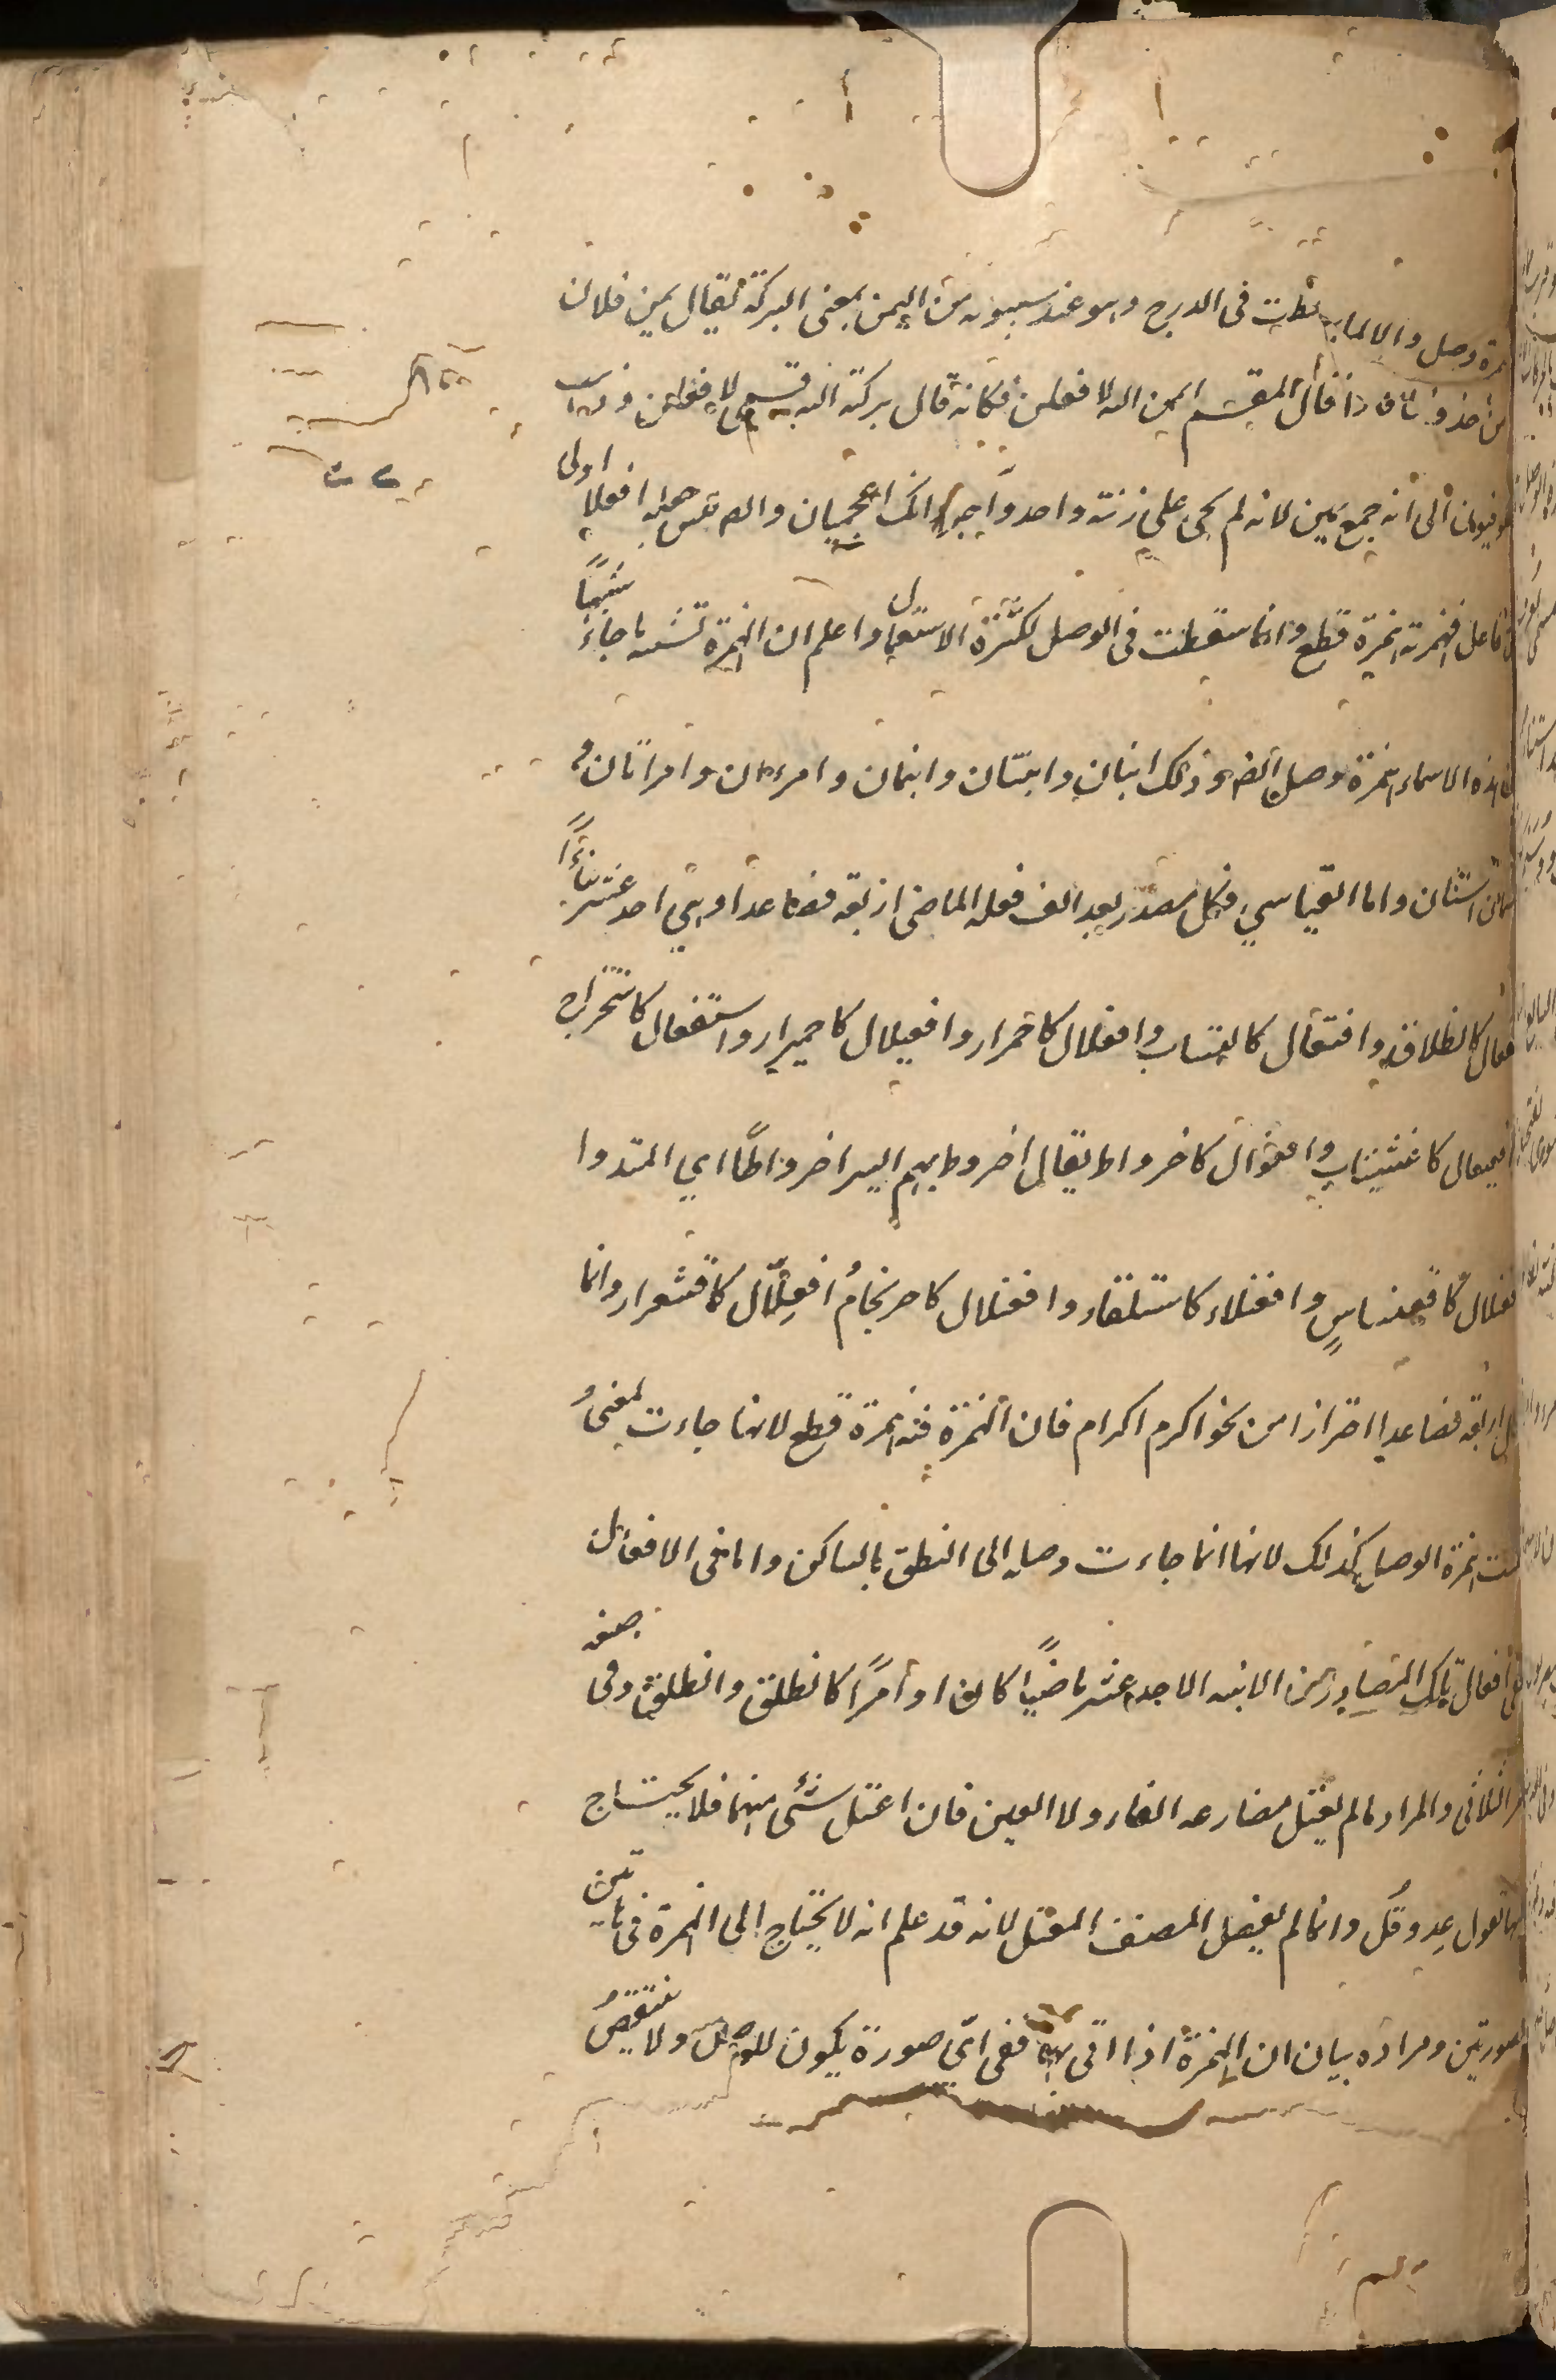 همزة وصل والا لما سقطت فى الدرج وهو عند سيبويه من اليمن بمعنى البركة يقال يمن فلان
فاذا قال المقسم ايمن الله لافعلن فكانه قال بركة الله قسمى لافعلن وذهب
الكوفيون الى انه جمع يمين لانه لم يجئ على زنته واحد وآجر وآنك اعجميان
اولى
فهمزته همزة قطع وانما سقطت فى الوصل لكثرة الاستعمال واعلم ان الهمزة
هذه الاسماء همزة وصل ايضا وذلك ابنان وابنتان وابنمان وامرءان وامراتان و
اثنتان واما القياسي فكل مصدر بعد الف فعله الماضى اربعة فصاعدا وهى احد عشر بناءً
كانطلاق وافتعال كاكتساب وافعلال كاحمرار وافعيلال كاحميرار واستفعال كاستخراج
وافعيعال كاعشيشاب وافعوال كاخرواط يقال اخروط بهم السير اخرواطًا اي امتد وا
فعنلال كاقعنساسٍ وافعنلاء كاسلنقاء وافعنلال كاحرنجام وافعِلّال كاقشعرار وانما
قال اربعة فصاعدا احترازا من نحو اكرم اكرام فان الهمزة فيه همزة قطع لانها جاءت لمعنى و
ليست همزة الوصل كذلك لانها انما جاءت وصلة الى النطق بالساكن واما فى الافعال
ففى افعال تلك المصادر من الابنية الاحد عشر ماضيًا كان او امرًا كانطلق وانطلق وفى
صيغة
امر الثلاثى والمراد ما لم يعتل مضارعه الفاء ولا العين فان اعتل شئ منهما فلا يحتاج
تقول عِد وقُل وانما لم يفصل المصنف المعتل لانه قد علم انه لا يحتاج الى الهمزة فى هاتين
الصورتين ومراده بيان ان الهمزة اذا اتى بها ففى اىّ صورة يكون للوصل ولا ينتقض